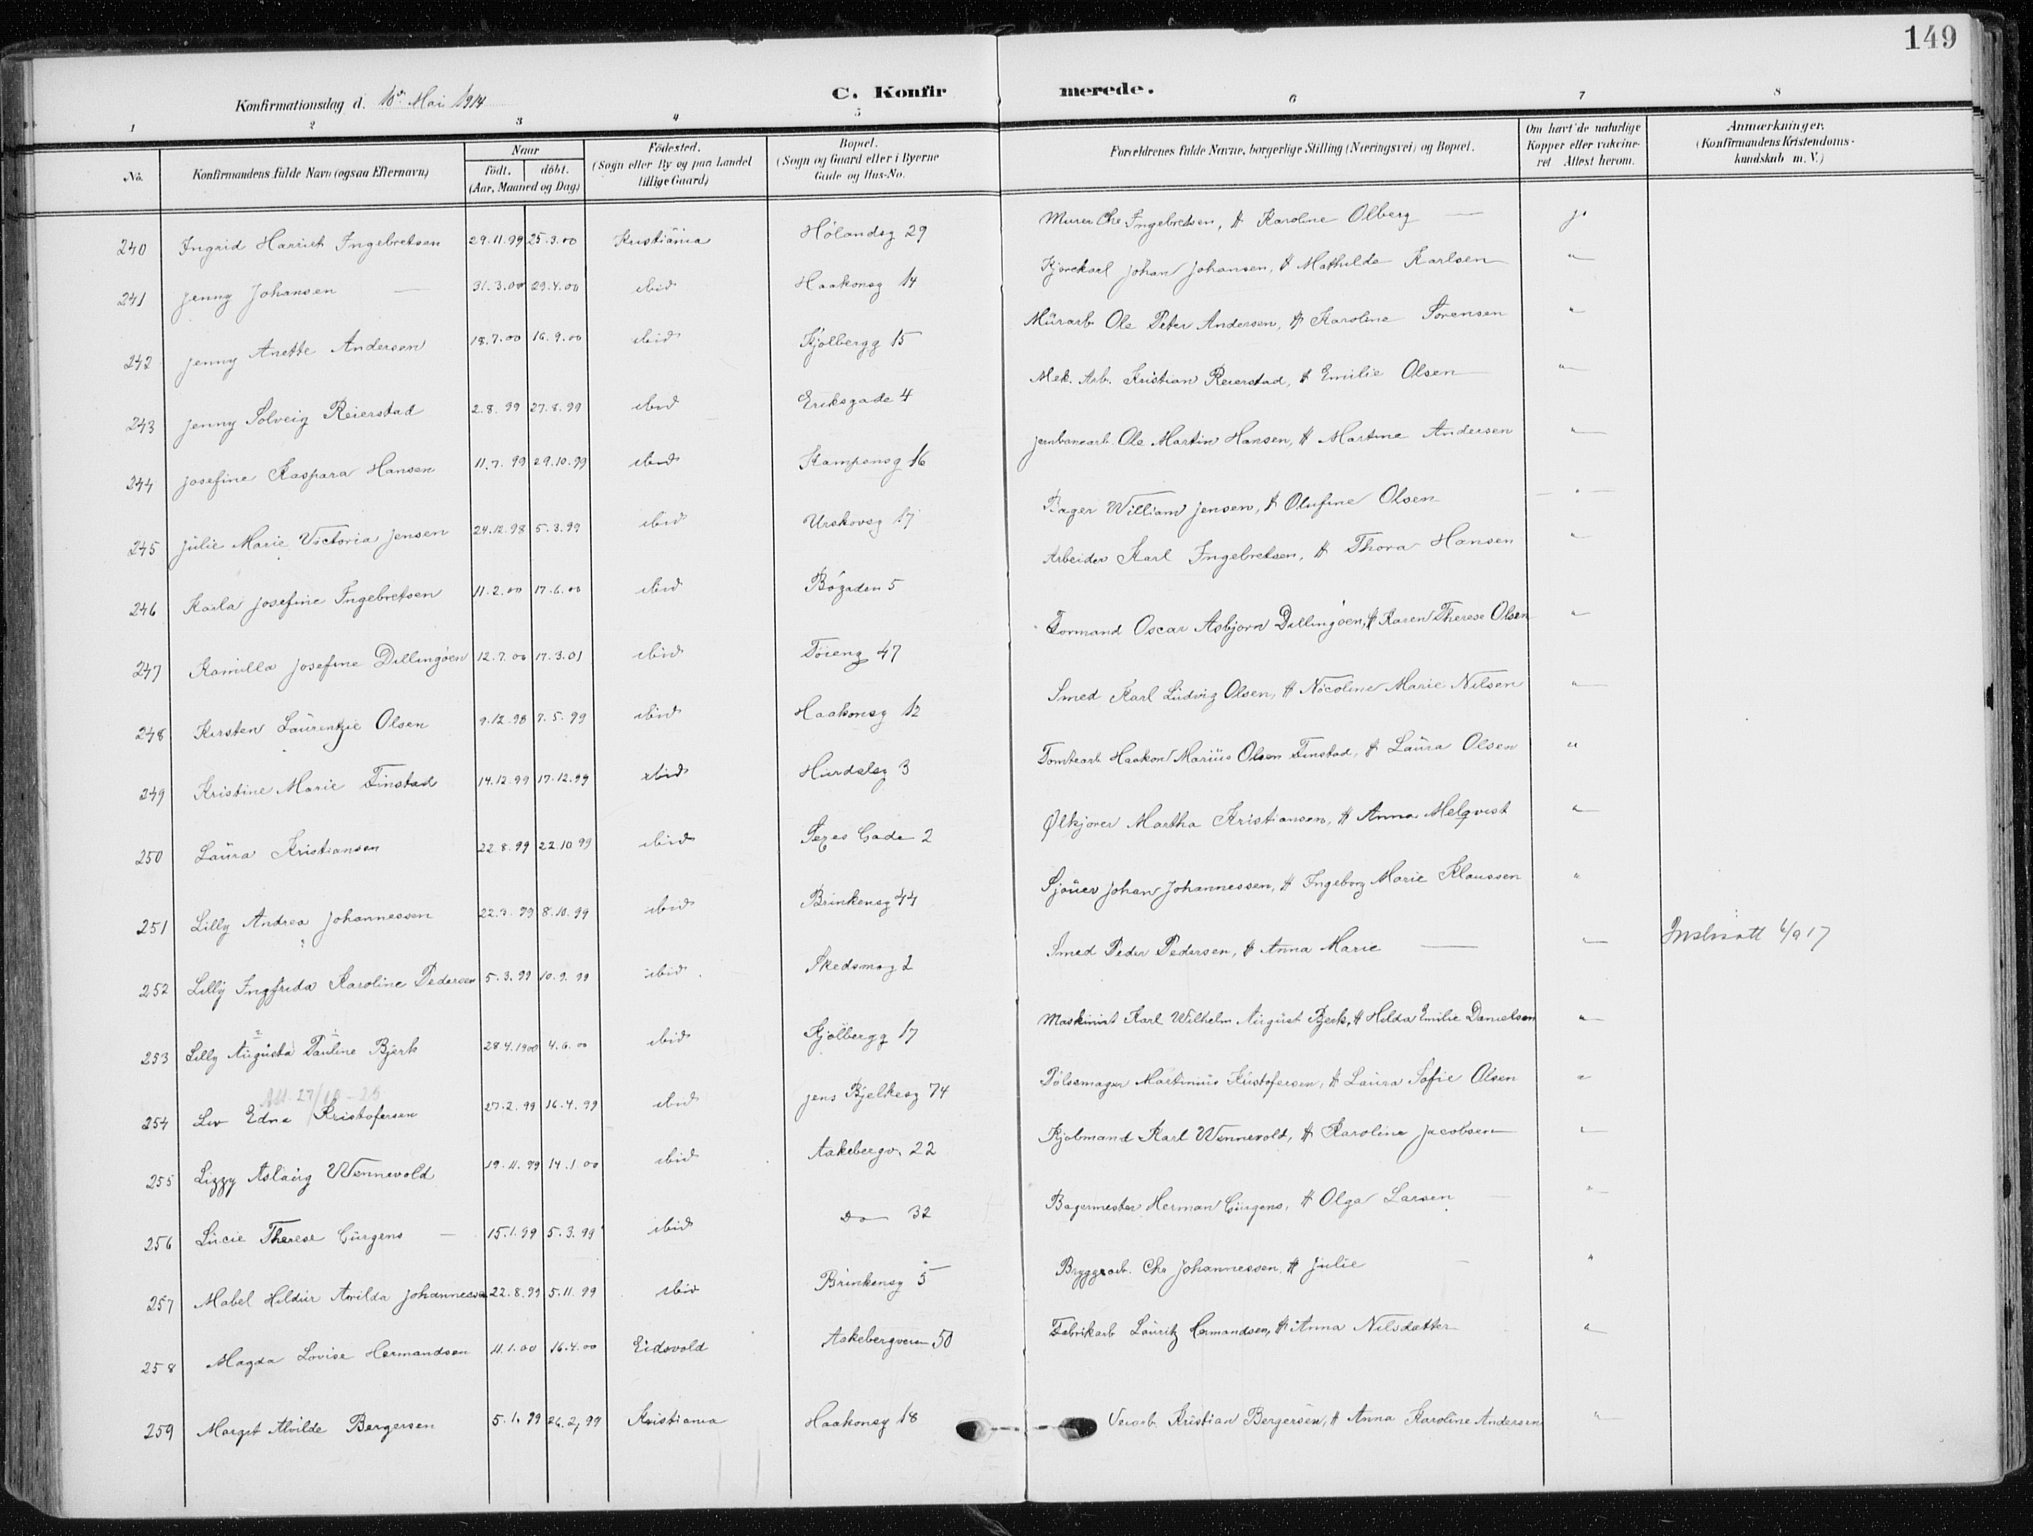 149
Konfirmationsdag d. 10de Mai 1914
C. Konfirmerede.
1 2 3 4 5 6 7 8
No. Konfirmandens fulde Navn (ogsaa Efternavn) Naar födt. döbt. (Aar, Maaned og Dag) Födested. (Sogn eller By og paa Landet tillige Gaard) Bopæl. (Sogn og Gaard eller i Byerne Gade og Hus-No. Forældrenes fulde Navne, borgerlige Stilling (Næringsvei) og Bopæl. Om havt de naturlige Kopper eller vakcineret Attest herom. Anmærkninger. (Konfirmandens Kristendomskundskab m. V.)
240 Ingrid Harriet Ingebretsen 29.11.99 25.3.00 Kristiania Hölandsg 29 Murer Ole Ingebretsen, & Karoline Olberg — ja
241 Jenny Johansen — 31.3.00 29.4.00 ibid Haakonsg 14 Kjörekarl Johan Johansen, & Mathilde Karlsen "
242 Jenny Anette Andersen 18.7.00 16.9.00 ibid Kjölbergg 15 Mürarb Ole Peter Andersen, & Karoline Sørensen "
243 Jenny Solveig Reierstad 2.8.99 27.8.99 ibid Eriksgade 4 Mek. Arb. Kristian Reierstad, & Emilie Olsen "
244 Josefine Kaspara Hansen 11.7.99 29.10.99 ibid Kampensg 16 Jernbanearb Ole Martin Hansen, & Martine Andersen "
245 Julie Marie Victoria Jensen 24.12.98 5.3.99 ibid Urskovsg 17 Bager William Jensen, & Olufine Olsen — " —
246 Karla Josefine Ingebretsen 11.2.00 17.6.00 ibid Bögaden 5 Arbeider Karl Ingebretsen, & Thora Hansen "
247 Kamilla Josefine Dillingöen 12.7.00 17.3.01 ibid Töieng 47 Formand Oscar Asbjörn Dillingöen, & Karen Therese Olsen "
248 Kirsten Laurentze Olsen 9.12.98 7.5.99 ibid Haakonsg 12 Smed Karl Ludvig Olsen, & Nicoline Marie Nilsen "
249 Kristine Marie Finstad 14.12.99 17.12.99 ibid Hurdalsg 3 Tomtearb Haakon Marius Olsen Finstad, & Laura Olsen "
250 Laura Kristiansen 22.8.99 22.10.99 ibid Sexes Gade 2 Ølkjører Martha Kristiansen, & Anna Melqvist "
251 Lilly Andrea Johannessen 22.3.99 8.10.99 ibid Brinkensg 44 Sjouer Johan Johannessen, & Ingeborg Marie Klaussen "
252 Lilly Ingfrida Karoline Pedersen 5.3.99 10.9.99 ibid Skedsmog 2 Smed Peder Pedersen, & Anna Marie — " 6/9 17
253 Lilly Augusta Pauline Bjerk 28.4.1900 4.6.00 ibid Kjölbergg 17 Maskinist Karl Wilhelm August Bjerk, & Hilda Emilie Danielsen "
Att. 27/10-25
254 Liv Edna Kristofersen 27.2.99 16.4.99 ibid Jens Bjelkesg 74 Pölsemager Martinius Kristofersen, & Laura Sofie Olsen "
255 Lizzy Aslaug Wennevold 19.11.99 14.1.00 ibid Aakebergv. 22 Kjöbmand Karl Wennevold, & Karoline Jacobsen "
256 Lucie Therese Gürgens — 15.1.99 5.3.99 ibid do 32 Bagermester Herman Gürgens, & Olga Larsen "
257 Mabel Hildur Arvilda Johannessen 22.8.99 5.11.99 ibid Brinkensg 5 Bryggearb. Chr Johannessen, & Julie "
258 Magda Lovise Hermandsen 11.1.00 16.4.00 Eidsvold Aakebergveien 50 Fabrikarb Lauritz Hermandsen, & Anna Nilsdatter "
259 Margit Alvilde Bergersen 5.1.99 26.2.99 Kristiania Haakonsg 18 Veiarb. Kristian Bergersen, & Anna Karoline Andersen "